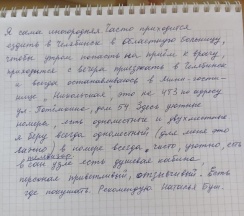 Я сама иногородняя часто приходится
ездить в Челябинск в областную больницу,
чтобы утром попасть на приём к врачу,
приходится с вечера приезжать в Челябинск
и всегда останавливаюсь в мини-гости-
нице Никольская, это на ЧТЗ по адресу
ул. Потёмкина, дом 54 Здесь уютные
номера, есть одноместные и двухместные
я беру всегда одноместный (для меня это
важно) в номере всегда чист, уютно, есть
телевизор,
в сан узле есть душевая кабина,
персонал приветливый, отзывчивый. Есть
где покушать Рекомендую Наталья Буш.